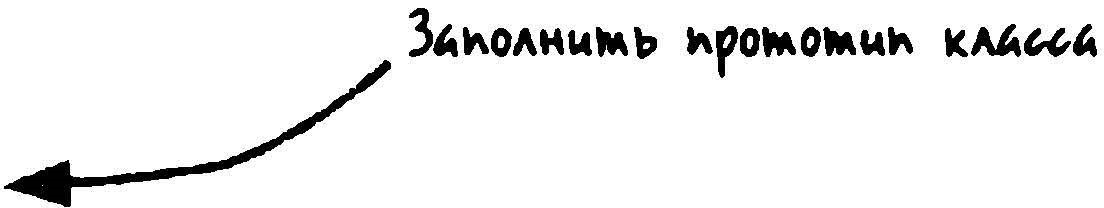 Заполнить прототип класса